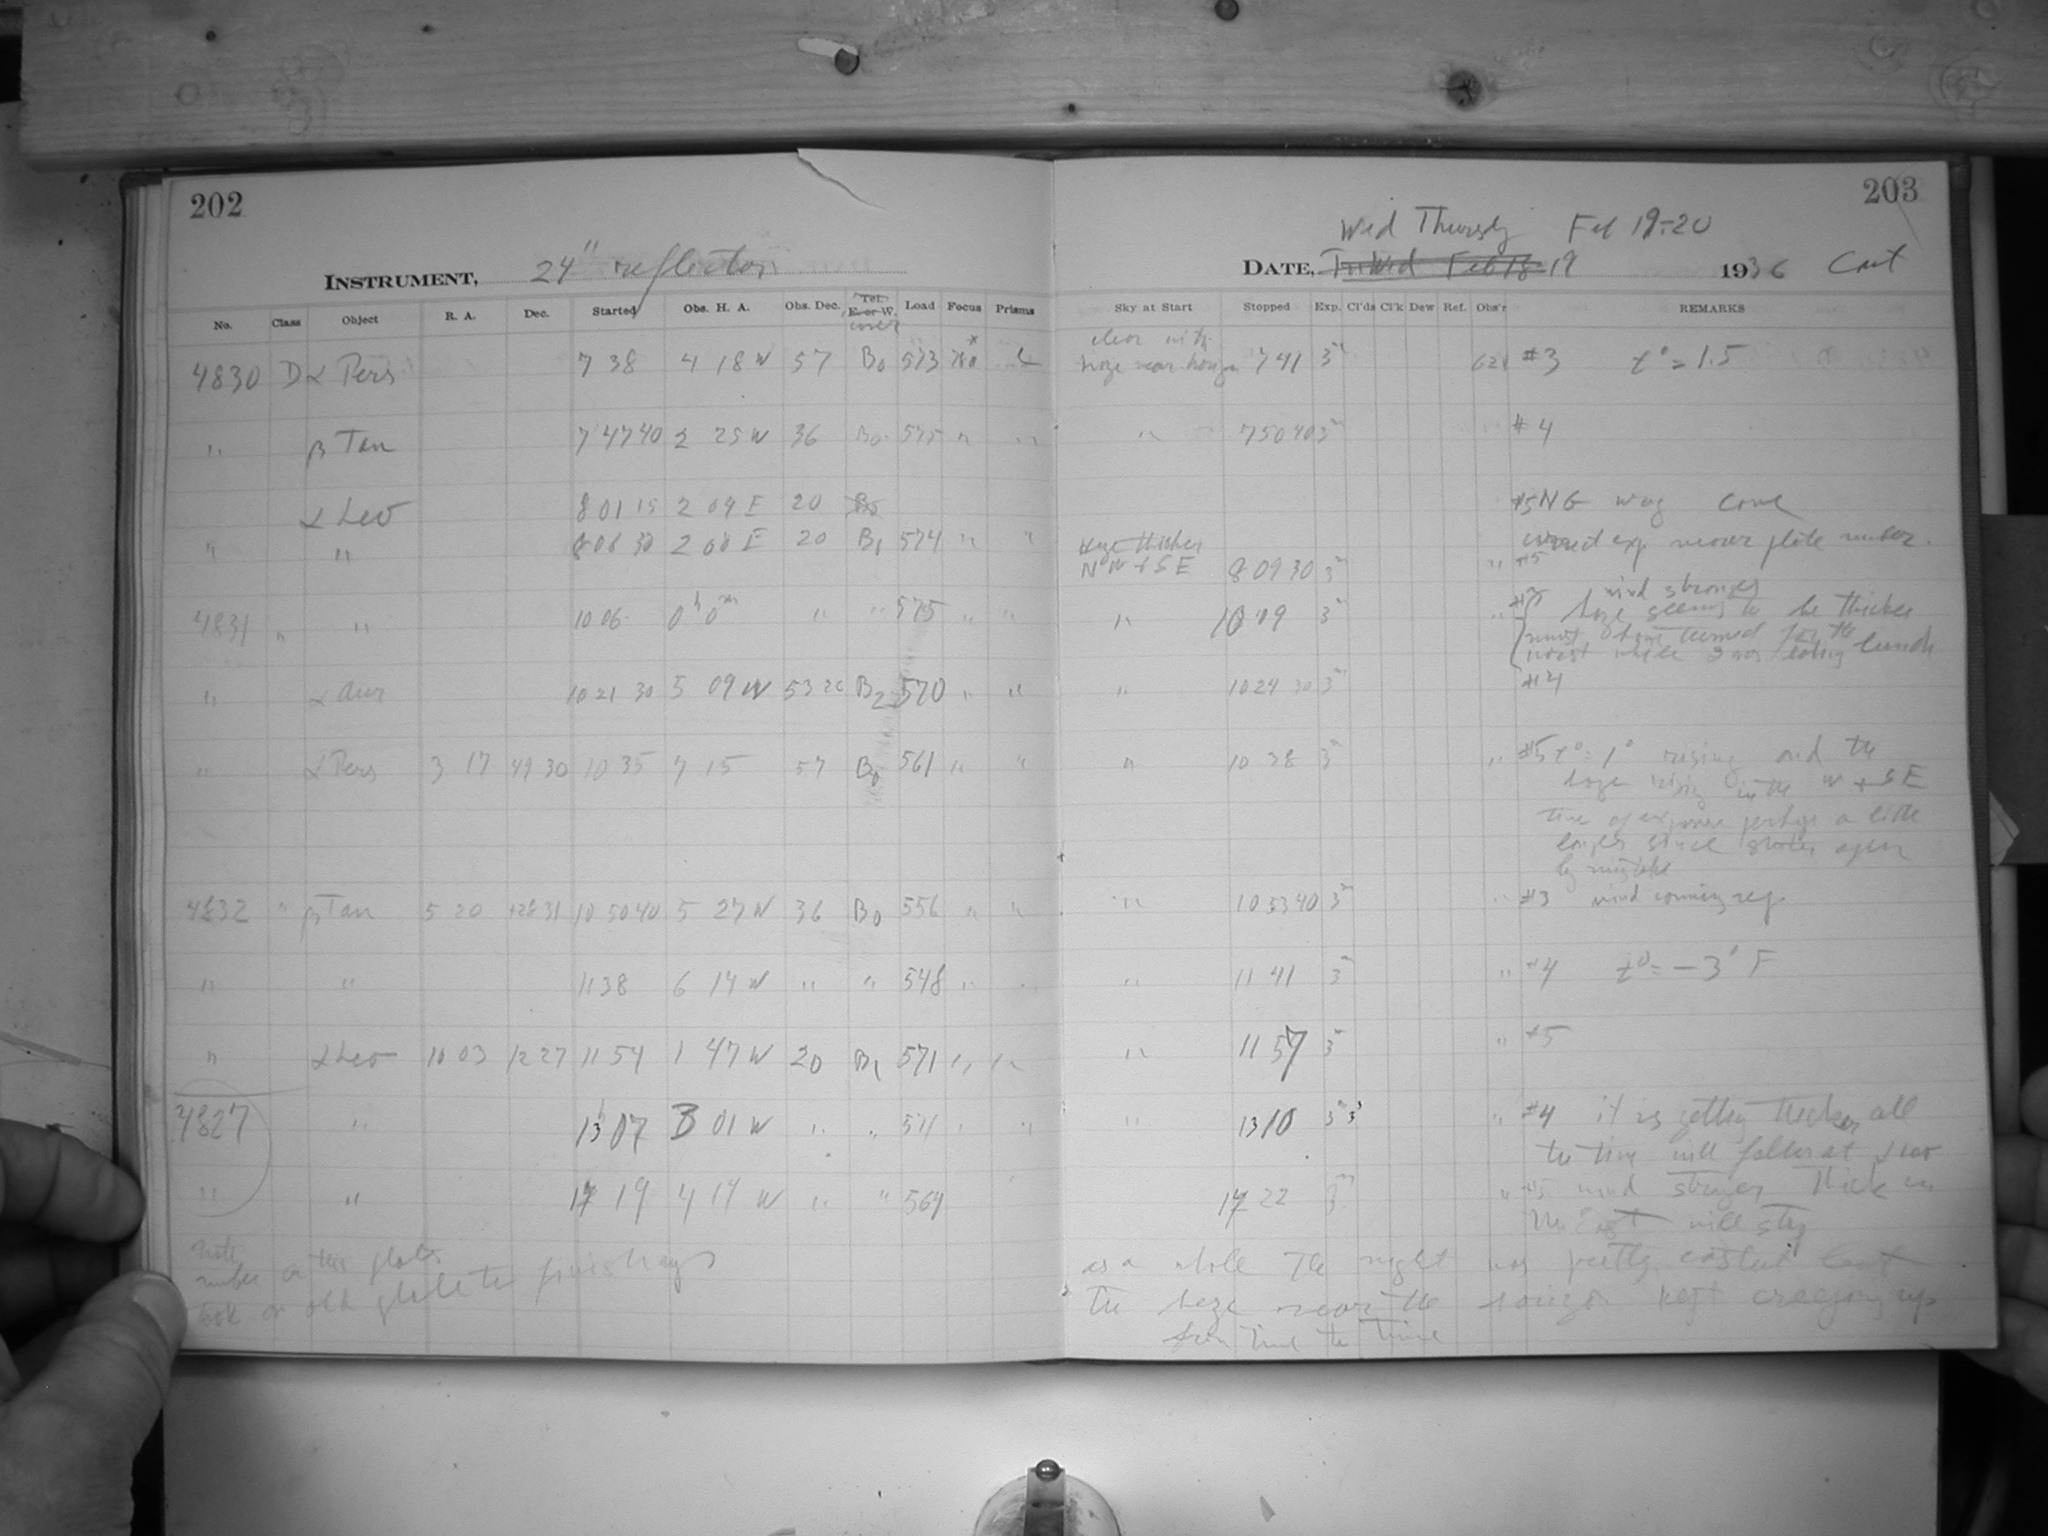 202
INSTRUMENT, 24" reflector
No. Class Object R. A. Dec. Started Obs. H. A. Obs. Dec. Tel. E. or W. cover Load Focus Prisms
4830 D α Pers 7 38 4 18 W 57 B0 573
" β Tau 7 47 40 2 25 W 36 B0 575 " "
α Leo 8 01 15 2 04 E 20 B0
" " 8 06 30 2 00 E 20 B1 574 " "
4831 " " 10 06 0h 0m " " 575 " "
" α Aur 10 21 30 5 09 W 53 20 B2 570 " "
" α Pers 3 17 49 30 10 35 7 15 57 B0 561 " "
4832 " β Tau 5 20 +28 31 10 50 40 5 27 W 36 B0 556 " "
" " 11 38 6 14 W " " 548 "
" α Leo 10 03 12 27 11 54 1 47 W 20 B1 571 " "
4827 " 13 07 3 01 W " " 571 " "
" " 14 19 4 14 W " " 564
Note
number on this plate
took an old plate to finish
203
Wed Thursday Feb 19-20
DATE, Tu Wed Feb 18 19 1936 Cont
Sky at Start Stopped Exp. Cl'ds Cl'k Dew Ref. Obs'r REMARKS
clear with
haze near horizon 7 41 3m #3 t° = 1.5
" 7 50 40 3m #4
#5 NG wrong cover
correct exp. number.
haze thicker
N W + S E 8 09 30 3m " #5
wind stronger
" 10 09 3m " haze seems to be thicker
must have turned for the
worst while I was eating lunch
" 10 24 30 3m #4
" 10 38 3m " #5 t° = 1° rising and the
haze rising in the W + S E
time of exposure perhaps a little
longer since shutter open
by mistake
" 10 53 40 3m " #3 wind coming up
" 11 41 3m " #4 t° = -3° F
" 11 57 3m " #5
" 13 10 3m " #4 it is getting thicker all
the time will follow at α Leo
14 22 3m " #5 wind stronger thick in
the East will stop
as a whole the night was but
the haze near the horizon kept creeping up
from time to time